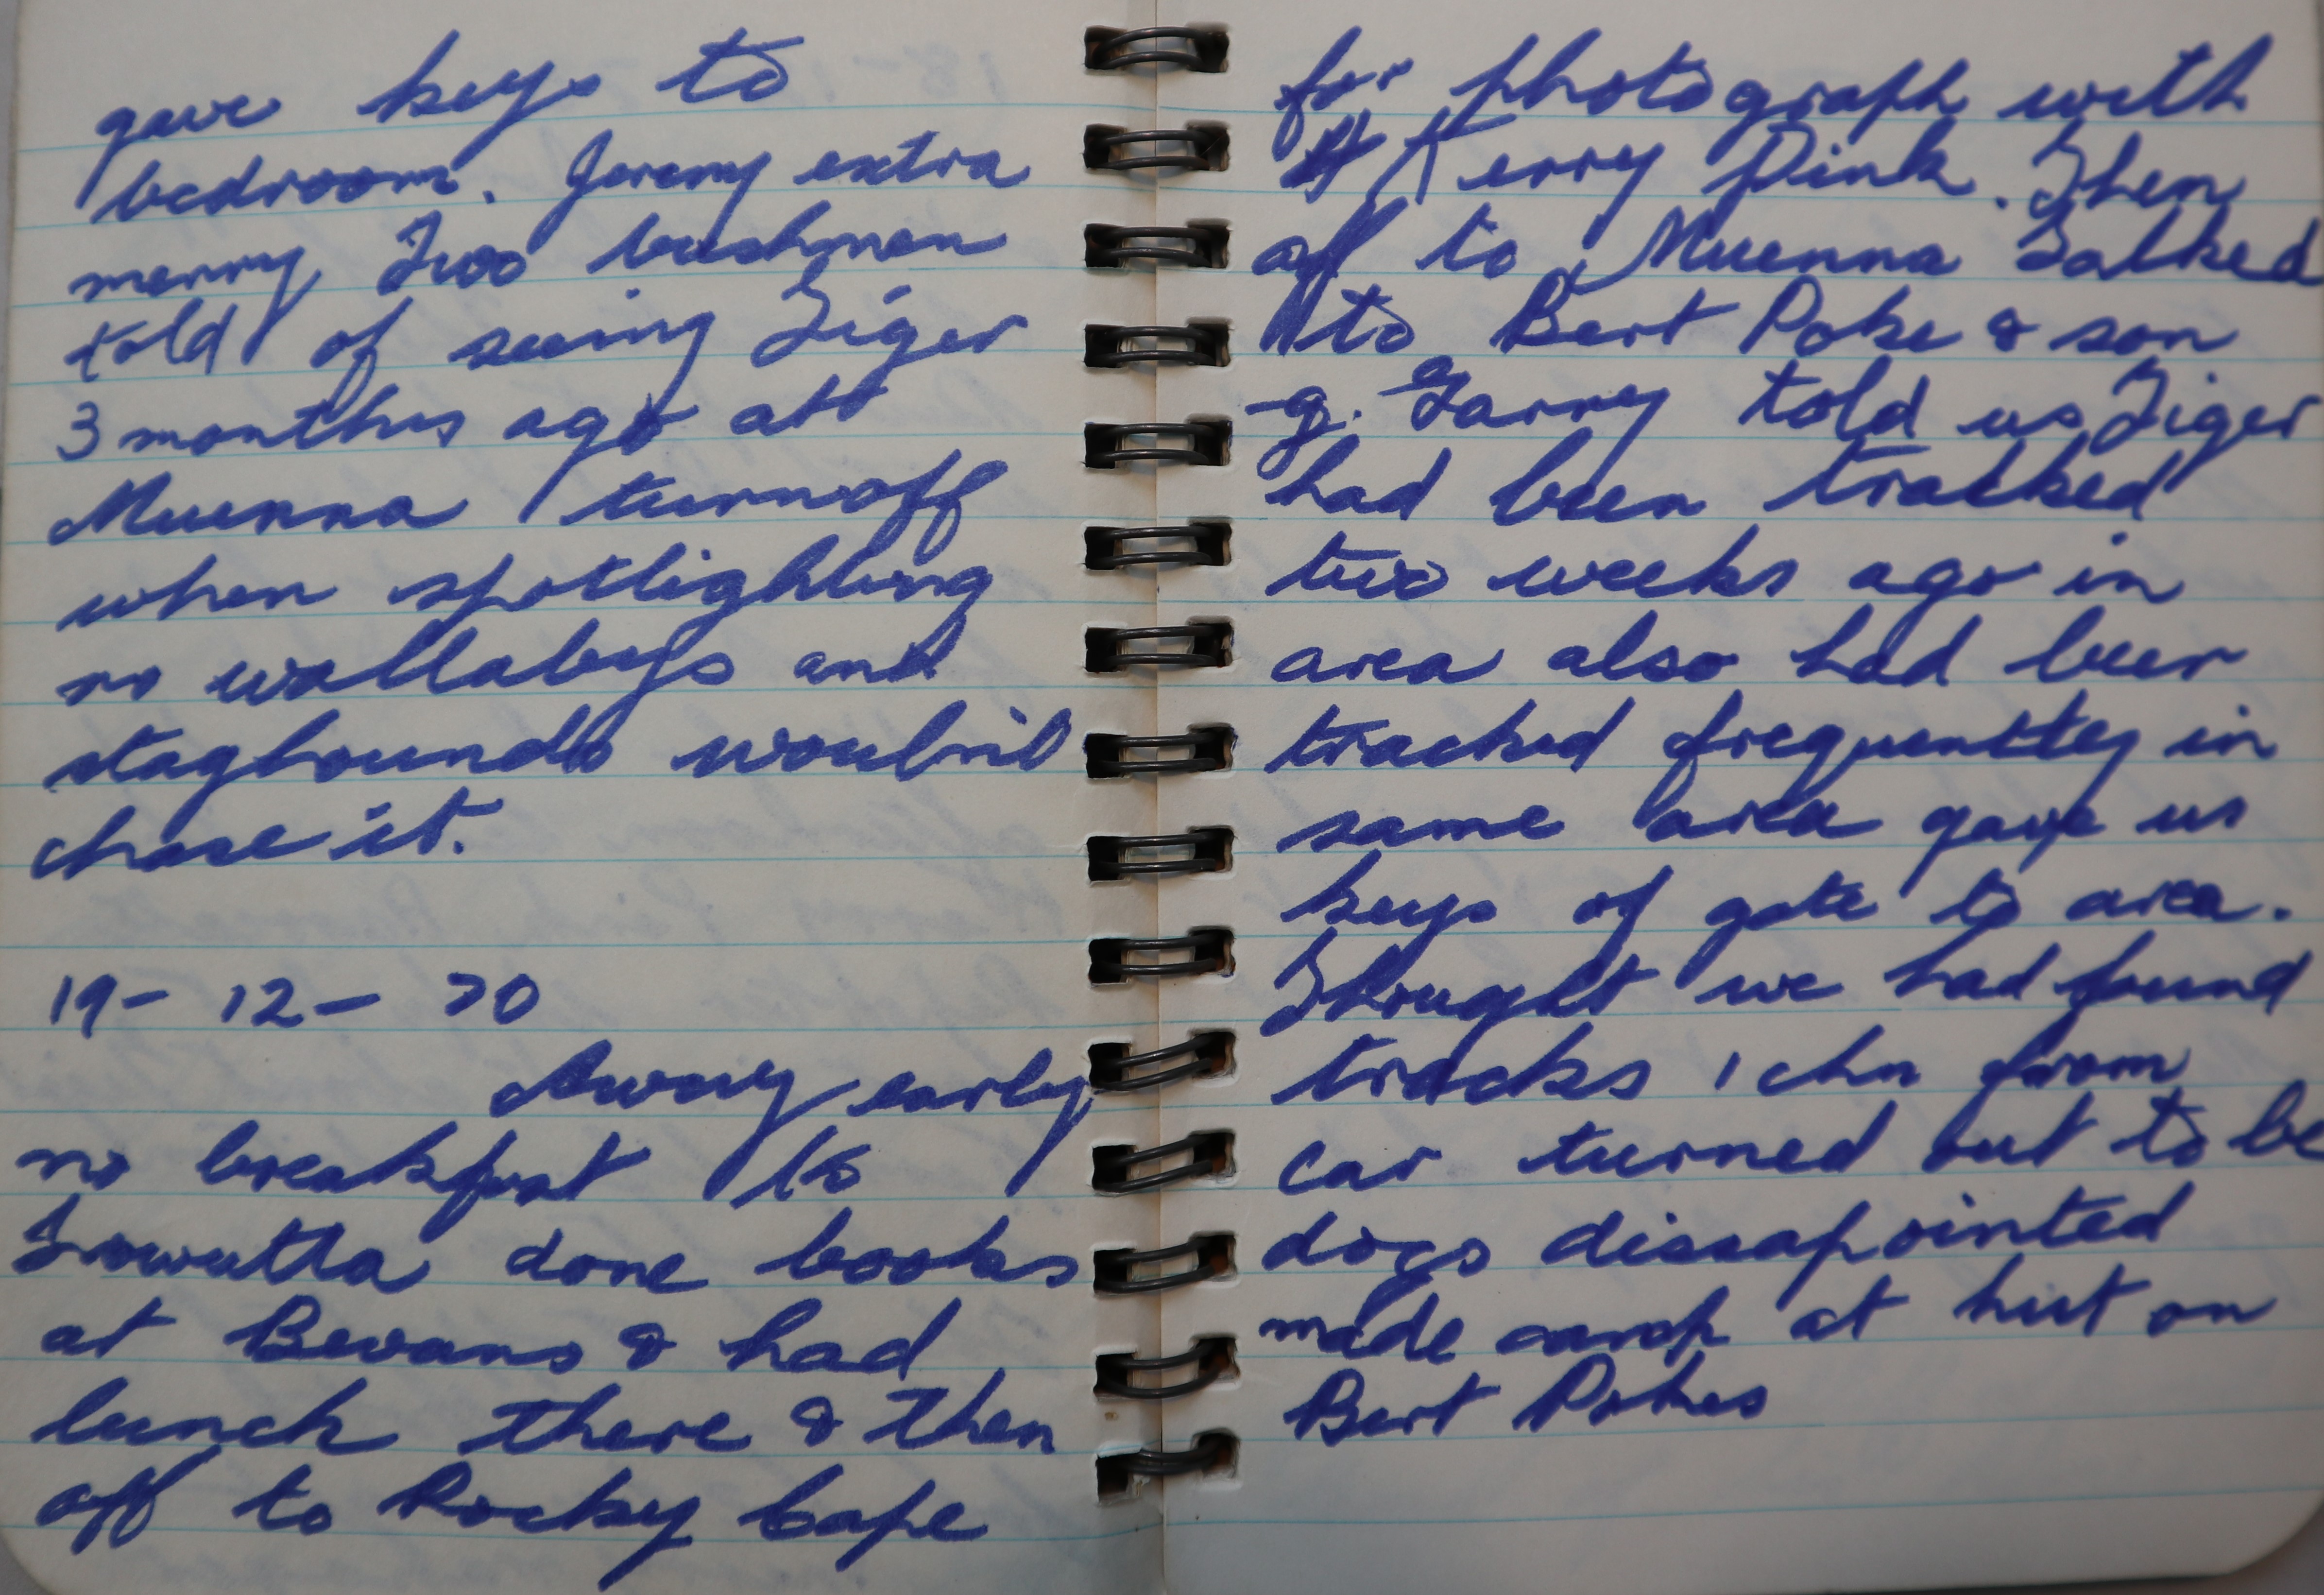 gave keys to
bedroom. Jeremy extra
merry, Two bushmen
told of seeing Tiger
3 months ago at
Muenna turnoff
when spotlighting
no wallabys and
staghounds
chase it.
19- 12- 70
Away early
no breakfast to
Trowutta done books
at Bevans & had
lunch there & then
off to Rocky Cape
for photograph with
Kerry Pink. Then
off to Muenna Talked
to Bert Poke & son
g. Garry told us Tiger
had been tracked
two weeks ago in
area also had been
tracked frequentley in
same area gave us
keys of gate to area.
Thought we had found
tracks 1 chn from
car turned out to be
dogs dissapointed
made camp at hut on
Bert Pokes